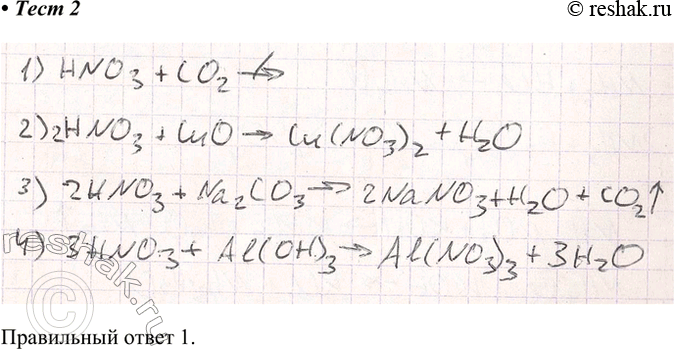 • Тест 2
© reshak.ru
1) HNO₃ + CO₂ ↛
2) 2HNO₃ + CuO → Cu(NO₃)₂ + H₂O
3) 2HNO₃ + Na₂CO₃ → 2NaNO₃ + H₂O + CO₂↑
4) 3HNO₃ + Al(OH)₃ → Al(NO₃)₃ + 3H₂O
© reshak.ru
Правильный ответ 1.